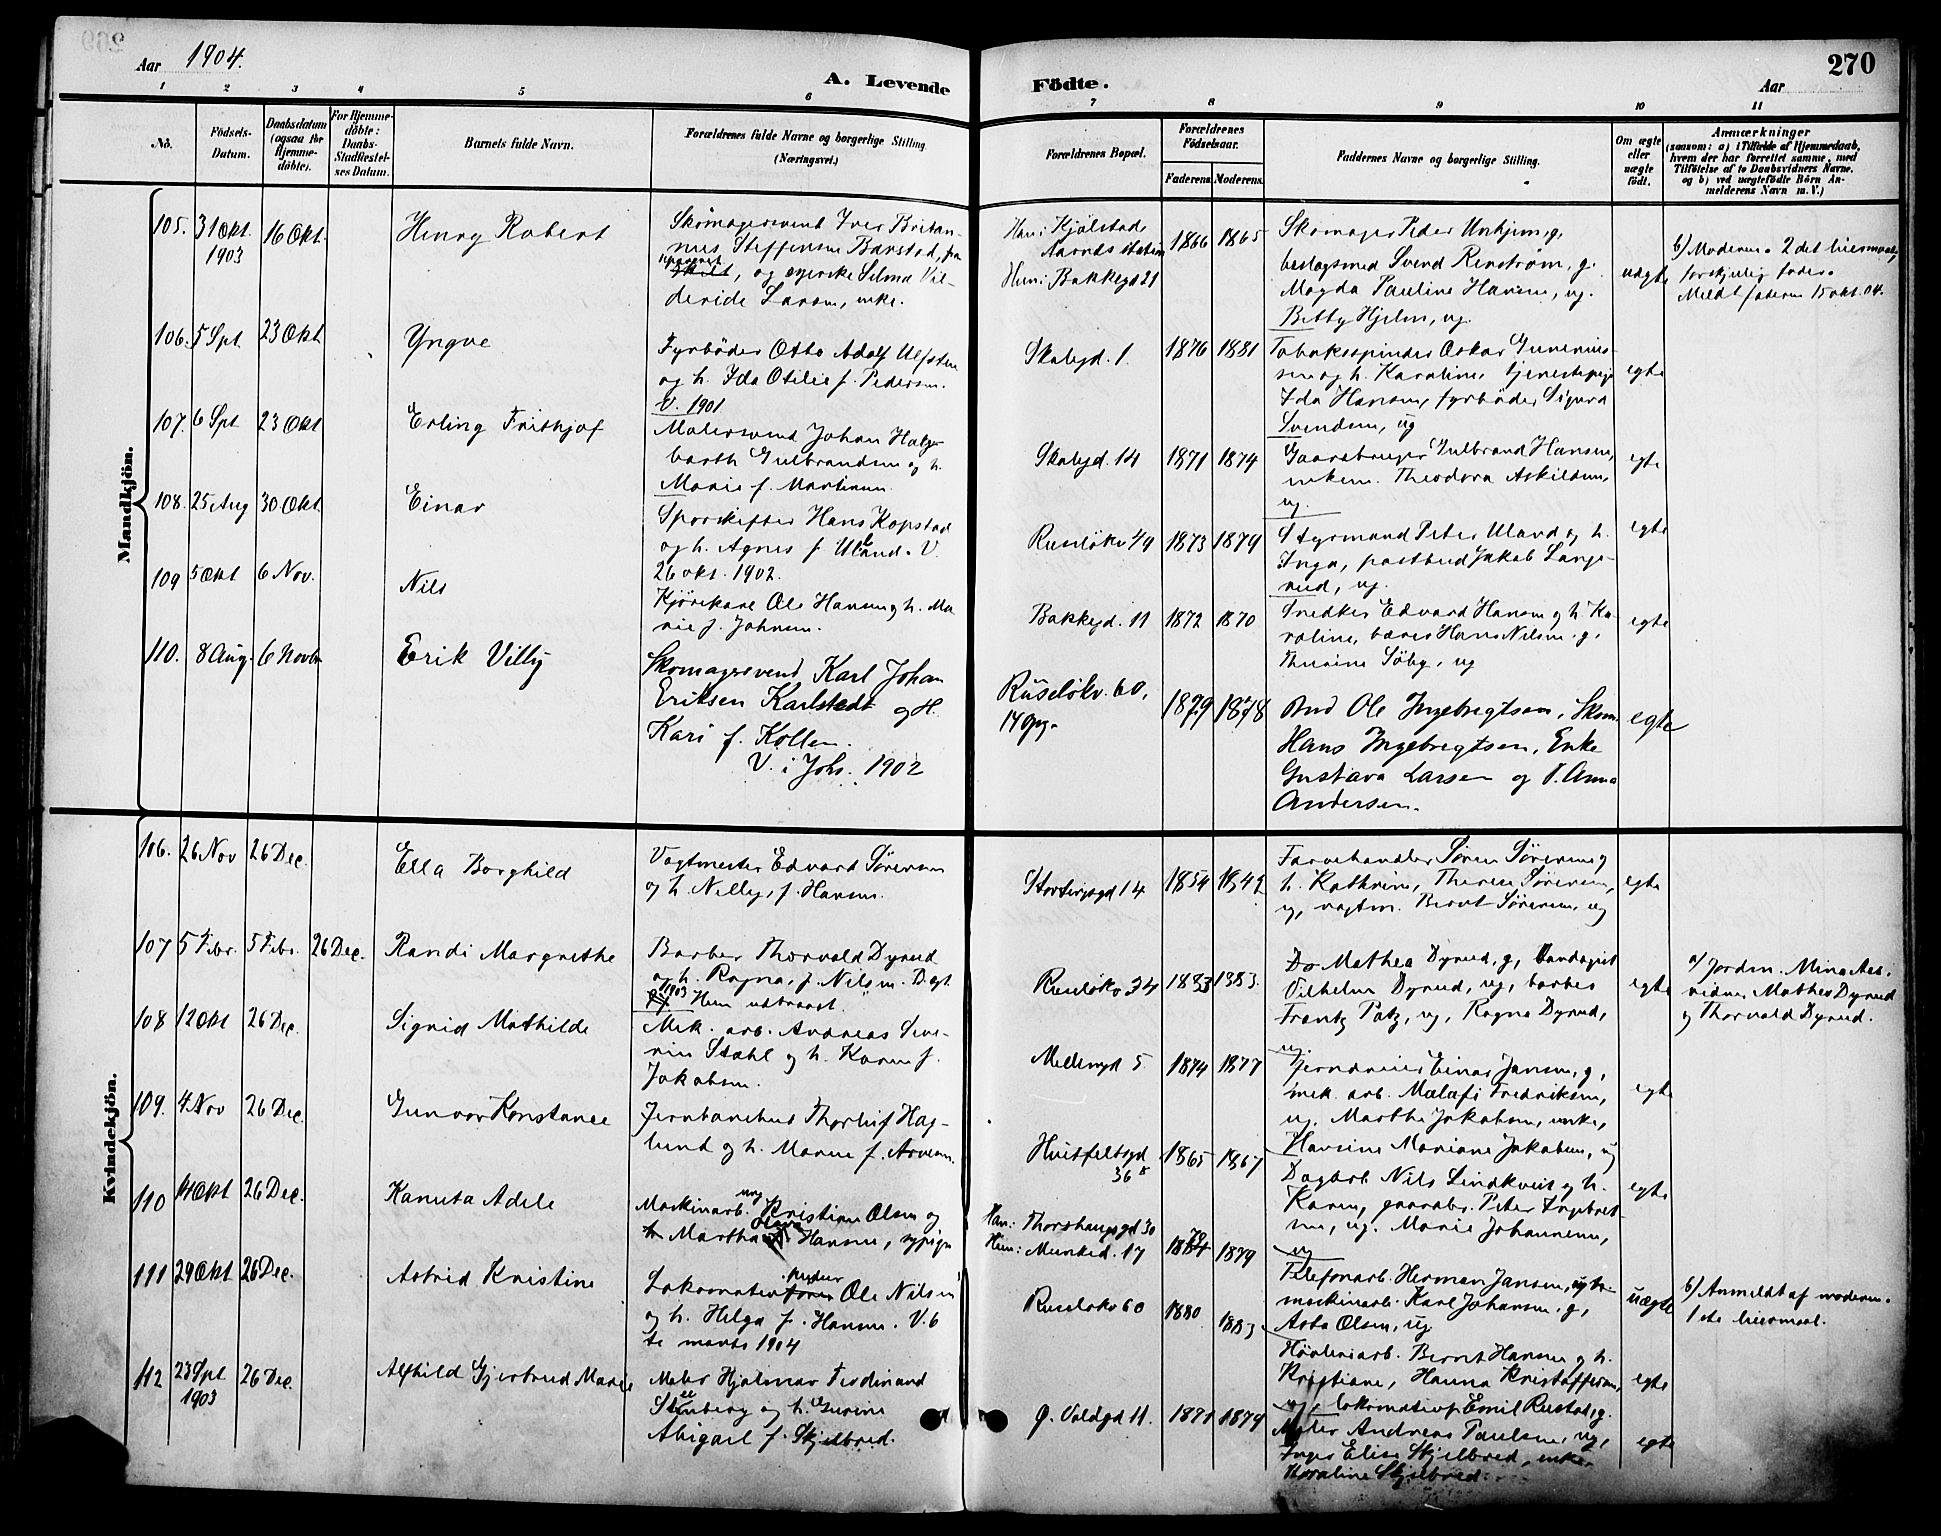 Aar 1904.
A. Levende Födte.
Aar
270
1 2 3 4 5 6 7 8 9 10 11
No.
Födsels-
Datum.
Daabsdatum
(ogsaa for
Hjemme-
döbte).
For Hjemme-
döbte:
Daabs-
Stadfæstel-
ses Datum.
Barnets fulde Navn.
Forældrenes fulde Navne og borgerlige Stilling
(Næringsvei.)
Forældrenes Bopæl.
Forældrenes
Födselsaar.
Faderens. Moderens.
Faddernes Navne og borgerlige Stilling.
Om ægte
eller
uægte
födt.
Anmærkninger
(saasom: a) i Tilfælde af Hjemmedaab,
hvem der har forrettet samme, med
Tilföielse af to Daabsvidners Navne,
og b) ved uægtefödte Börn An-
melderens Navn m. V.)
Mandkjön.
105. 31 Okt. 16 Okt. Henry Robert
1903
Skomagersvend Iver Britan-
nus Steffensen Barstad, fra
og syerske Selma Vil-
deride Larsen, enke.
Han: Kjölstad
Aarnes station
Hun: Bakkegd 21
1866 1865
Skomager Peder Unhjem, g,
beslagsmed Svend Renström, g.
Magda Pauline Hansen, ug.
Betty Hjelm, ug.
uægte
b) Moderens 2 det leiermaal,
forskjelig fader.
Meldt faderen 15 okt. 04.
106. 5 Spt 23 Okt Yngve
Fyrböder Otto Adolf Ulfsten
og h. Ida Otilie f. Pedersen.
V. 1901
Skalegd. 1. 1876 1881
Tobaksspinder Oskar Gunerius-
sen og h. Karoline, tjenestepige
Ida Hansen, fyrböder Sigurd
Svendsen, ug
egte
107. 6 Spt 23 Okt Erling Frithjof
Malersvend Johan Halge-
barth Gulbrandsen og h.
Marie f. Martinsen.
Skalegd. 14 1871 1874
Gaardbruger Gulbrand Hansen,
enkem. Theodora Askildsen,
ug.
egte
108. 25 Aug 30 Okt Einar
Sporskifter Hans Kopstad
og h. Agnes f. Uland. V.
26 okt. 1902.
Ruselökv 49 1873 1879
Styrmand Peter Uland og h.
Inga, postbud Jakob Lange-
rud, ug.
egte
109 5 Okt 6 Nov. Nils
Kjörekarl Ole Hansen og h. Ma
rie f. Johnsen.
Bakkegd. 11 1872 1870
Snedker Edvard Hansen og h. Ka-
roline, bærer Hans Nilsen, g,
Thurine Söby, ug
egte
110. 8 Aug. 6 Novbr Erik Villy
Skomagersvend Karl Johan
Eriksen Karlstedt og H.
Kari f. Kollen.
V. i Johs. 1902
Ruselökv. 60,
14 opg.
1879 1878
Bud Ole Ingebregtsen, Skom.
Hans Ingebregtsen, Enke
Gustava Larsen og P. Anna
Andersen.
egte
Kvindekjön.
106. 26 Nov 26 Dec. Ella Borghild
Vagtmester Edvard Sörensen
og h. Nelly, f. Hansen.
Stortingsgd 14 1854 1849
Farvehandler Sören Sörensen og
h. Kathrine, Therese Sörensen,
ug, vagtm. Bernt Sörensen, ug
egte
107 5 Febr. 5 Febr. 26 Dec. Randi Margrethe
Barber Thorvald Dyrud
og h. Ragna, f. Nilsen. Dagl.
1903 Hun udtraadt.
Ruselökv 34 1883 1883.
Do Mathea Dyrud, g,
Vilhelm Dyrud, ug, barber
Frantz Patz, ug, Ragna Dyrud,
ug
egte
a) Jordm. Mina Aas.
vidner Mathea Dyrud
og Thorvald Dyrud.
108 12 Okt 26 Dec. Sigrid Mathilde
Mek. arb. Andreas Seve-
rin Stahl og h. Karen f.
Jakobsen.
Mellemgd 5. 1874 1877
Jerndreier Einar Jansen, g,
mek. arb. Malafi Fredriksen,
ug. Marthe Jakobsen, enke,
Hansine Mariane Jakobsen, ug
egte
109. 4 Nov 26 Dec. Gunvor Konstance
Jernbanebud Thorleif Hag-
lund og h. Maren f. Arnesen.
Huitfeltsgd
36 1865 1867
Dagarb. Nils Lindkveit og h.
Karen, gaardbr. Peter Ingebret-
sen, ug. Marie Johannesen,
ug
egte
110 14 Okt 26 Dec. Kanuta Adele
Maskinarb. ung Kristian Olsen og
Martha Hansen, sypige
Han: Thorshaugsgd 30
Hun: Munked. 17
1879
Telefonarb. Herman Jansen, ug
maskinarb. Karl Johansen, g,
Asta Olsen, ug
uægte
b) Anmeldt af moderen.
1ste leiermaal.
111 29 Okt 26 Dec. Astrid Kristine
Lokomotivpudser Ole Nilsen
og h. Helga f. Hansen. V. 6
te marts 1904
Ruselökv 60 1880 1883
Hövleriarb. Bernt Hansen og h.
Kristiane, Hanna Kristoffersen,
ug, lokomotivf. Emil Rustad, g.
egte
112 23 Spt 26 Dec. Alfhild Gjertrud Marie
1903
Maler Hjalmar Ferdinand
Stenberg og h. Gurine
Abigael f. Skjelbred.
Ø. Voldgd 11. 1871 1874
Maler Andreas Paulsen, ug,
Inger Elise Skjelbred, enke.
Karoline Skjelbred.
egte